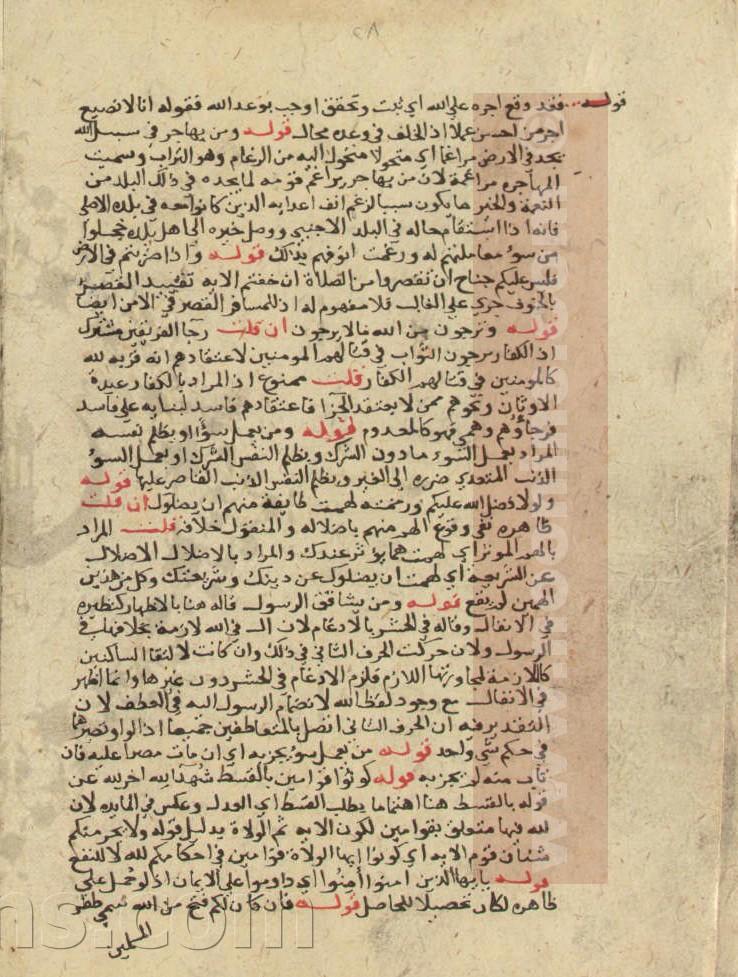 ٢٨
قوله فقد وقع اجره على الله اي ثبت وتحقق اوجب بوعد الله فقوله انا لا نضيع
اجر من احسن عملا اذ الخلف في وعده محال قوله ومن يهاجر في سبيل الله
يجد في الارض مراغما اي متحولا يتحول اليه من الرغام وهو التراب وسميت
المهاجرة مراغمة لان من يهاجر يراغم قومه لما يجده في ذلك البلد من
النعمة والخير ما يكون سببا لرغم انف اعدايه الذين كانوا معه في بلده الاصلي
فانه اذا استقام حاله في البلد الاجنبي ووصل خبره الى اهل بلده خجلوا
من سوء معاملتهم له ورغمت انوفهم بذلك قوله واذا ضربتم في الارض
فليس عليكم جناح ان تقصروا من الصلاة ان خفتم الايه تقييد القصر
بالخوف جري على الغالب فلا مفهوم له اذ للمسافر القصر في الامن ايضا
قوله وترجون من الله ما لا يرجون ان قلت رجا الفريقين مشترك
اذ الكفار يرجون الثواب في قتالهم المومنين لاعتقادهم انه قربة لله
كالمومنين في قتالهم الكفار قلت ممنوع اذ المراد بالكفار عبدة
الاوثان ونحوهم ممن لا يعتقد الجزا فاعتقادهم فاسد لبنايه على فاسد
فرجاؤهم وهمي فهو كالمعدوم قوله ومن يعمل سوءا او يظلم نفسه
المراد بعمل السوء ما دون الشرك وبظلم النفس الشرك او بعمل السوء
الذنب المتعدي ضرره الى الغير وبظلم النفس الذنب القاصر عليها قوله
ولولا فضل الله عليكم ورحمته لهمت طايفة منهم ان يضلوك ان قلت
ظاهره نفي وقوع الهم منهم باضلاله والمنقول خلافه قلت المراد
بالهم الموثر اي لهمت هما يوثر عندك والمراد بالاضلال الاضلال
عن الشريعة اي لهمت ان يضلوك عن دينك وشريعتك وكل من هذين
الهمين لم يقع قوله ومن يشاقق الرسول قاله هنا بالاظهار كنظيره
في الانفال وقاله في الحشر بالادغام لان ال في الله لازمة بخلافها في
الرسول ولان حركة الحرف الثاني في ذلك وان كانت لالتقا الساكنين
كاللازمة لمجاورتها اللازم فلزم الادغام في الحشر دون غيرها وانما اظهر
في الانفال مع وجود لفظ الله لانضمام الرسول اليه في العطف لان
التقدير فيه ان الحرف الثاني اتصل بالمتعاطفين جميعا اذ الواو تصيرهما
في حكم شي واحد قوله من يعمل سوءا يجز به اي ان مات مصرا عليه فان
تاب منه لم يجز به قوله كونوا قوامين بالقسط شهدا لله اخر لله عن
قوله بالقسط هنا اهتماما بطلب القسط اي العدل وعكس في المايده لان
لله فيها متعلق بقوامين لكون الايه ثم الولاة بدليل قوله ولا يجرمنكم
شنان قوم الايه اي كونوا ايها الولاة قوامين في احكامكم لله لا للنفع
قوله يا ايها الذين امنوا امنوا اي داوموا على الايمان اذ لو حمل على
ظاهره لكان تحصيلا للحاصل قوله فان كان لكم فتح من الله سمي ظفر
المسلمين